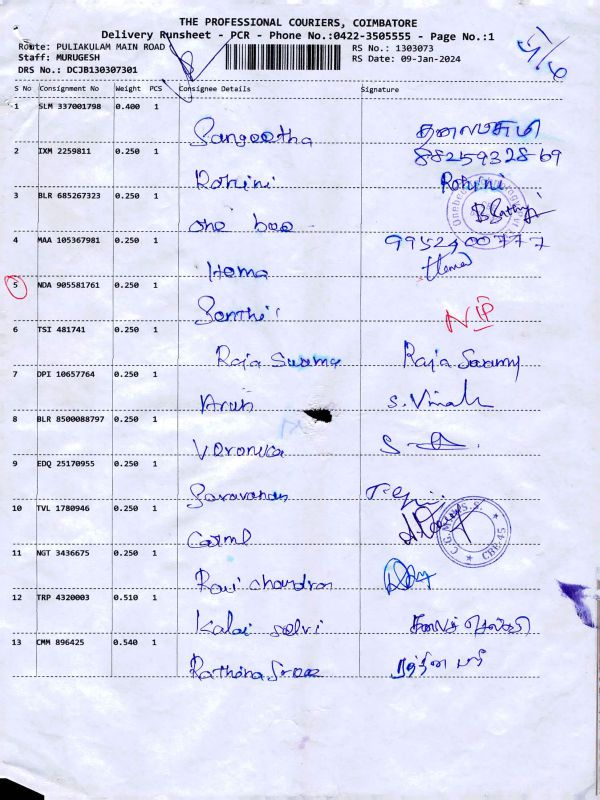 THE PROFESSIONAL COURIERS, COIMBATORE
Delivery Runsheet - PCR - Phone No.:0422-3505555 - Page No.:1
Route: PULIAKULAM MAIN ROAD
RS No.: 1303073
Staff: MURUGESH
RS Date: 09-Jan-2024
DRS No.: DCJB130307301
S No Consignment No Weight PCS Consignee Details Signature
1 SLM 337001798 0.400 1
Sangeetha தனலட்சுமி
8825932869
2 IXM 2259811 0.250 1
Rohini Rohini
3 BLR 685267323 0.250 1
one bee B Sathya
4 MAA 105367981 0.250 1
9952400777
Hema Hema
5 NDA 905581761 0.250 1
Senthil NIP
6 TSI 481741 0.250 1
Raja Swamy Raja Swamy
7 DPI 10657764 0.250 1
Arun S. Vimal
8 BLR 8500088797 0.250 1
Veronica
9 EDQ 25170955 0.250 1
Saravanan
10 TVL 1780946 0.250 1
Carmel
11 NGT 3436675 0.250 1
Ravi chandran
12 TRP 4320003 0.510 1
Kalai selvi கலைச் செல்வி
13 CMM 896425 0.540 1
Rathina